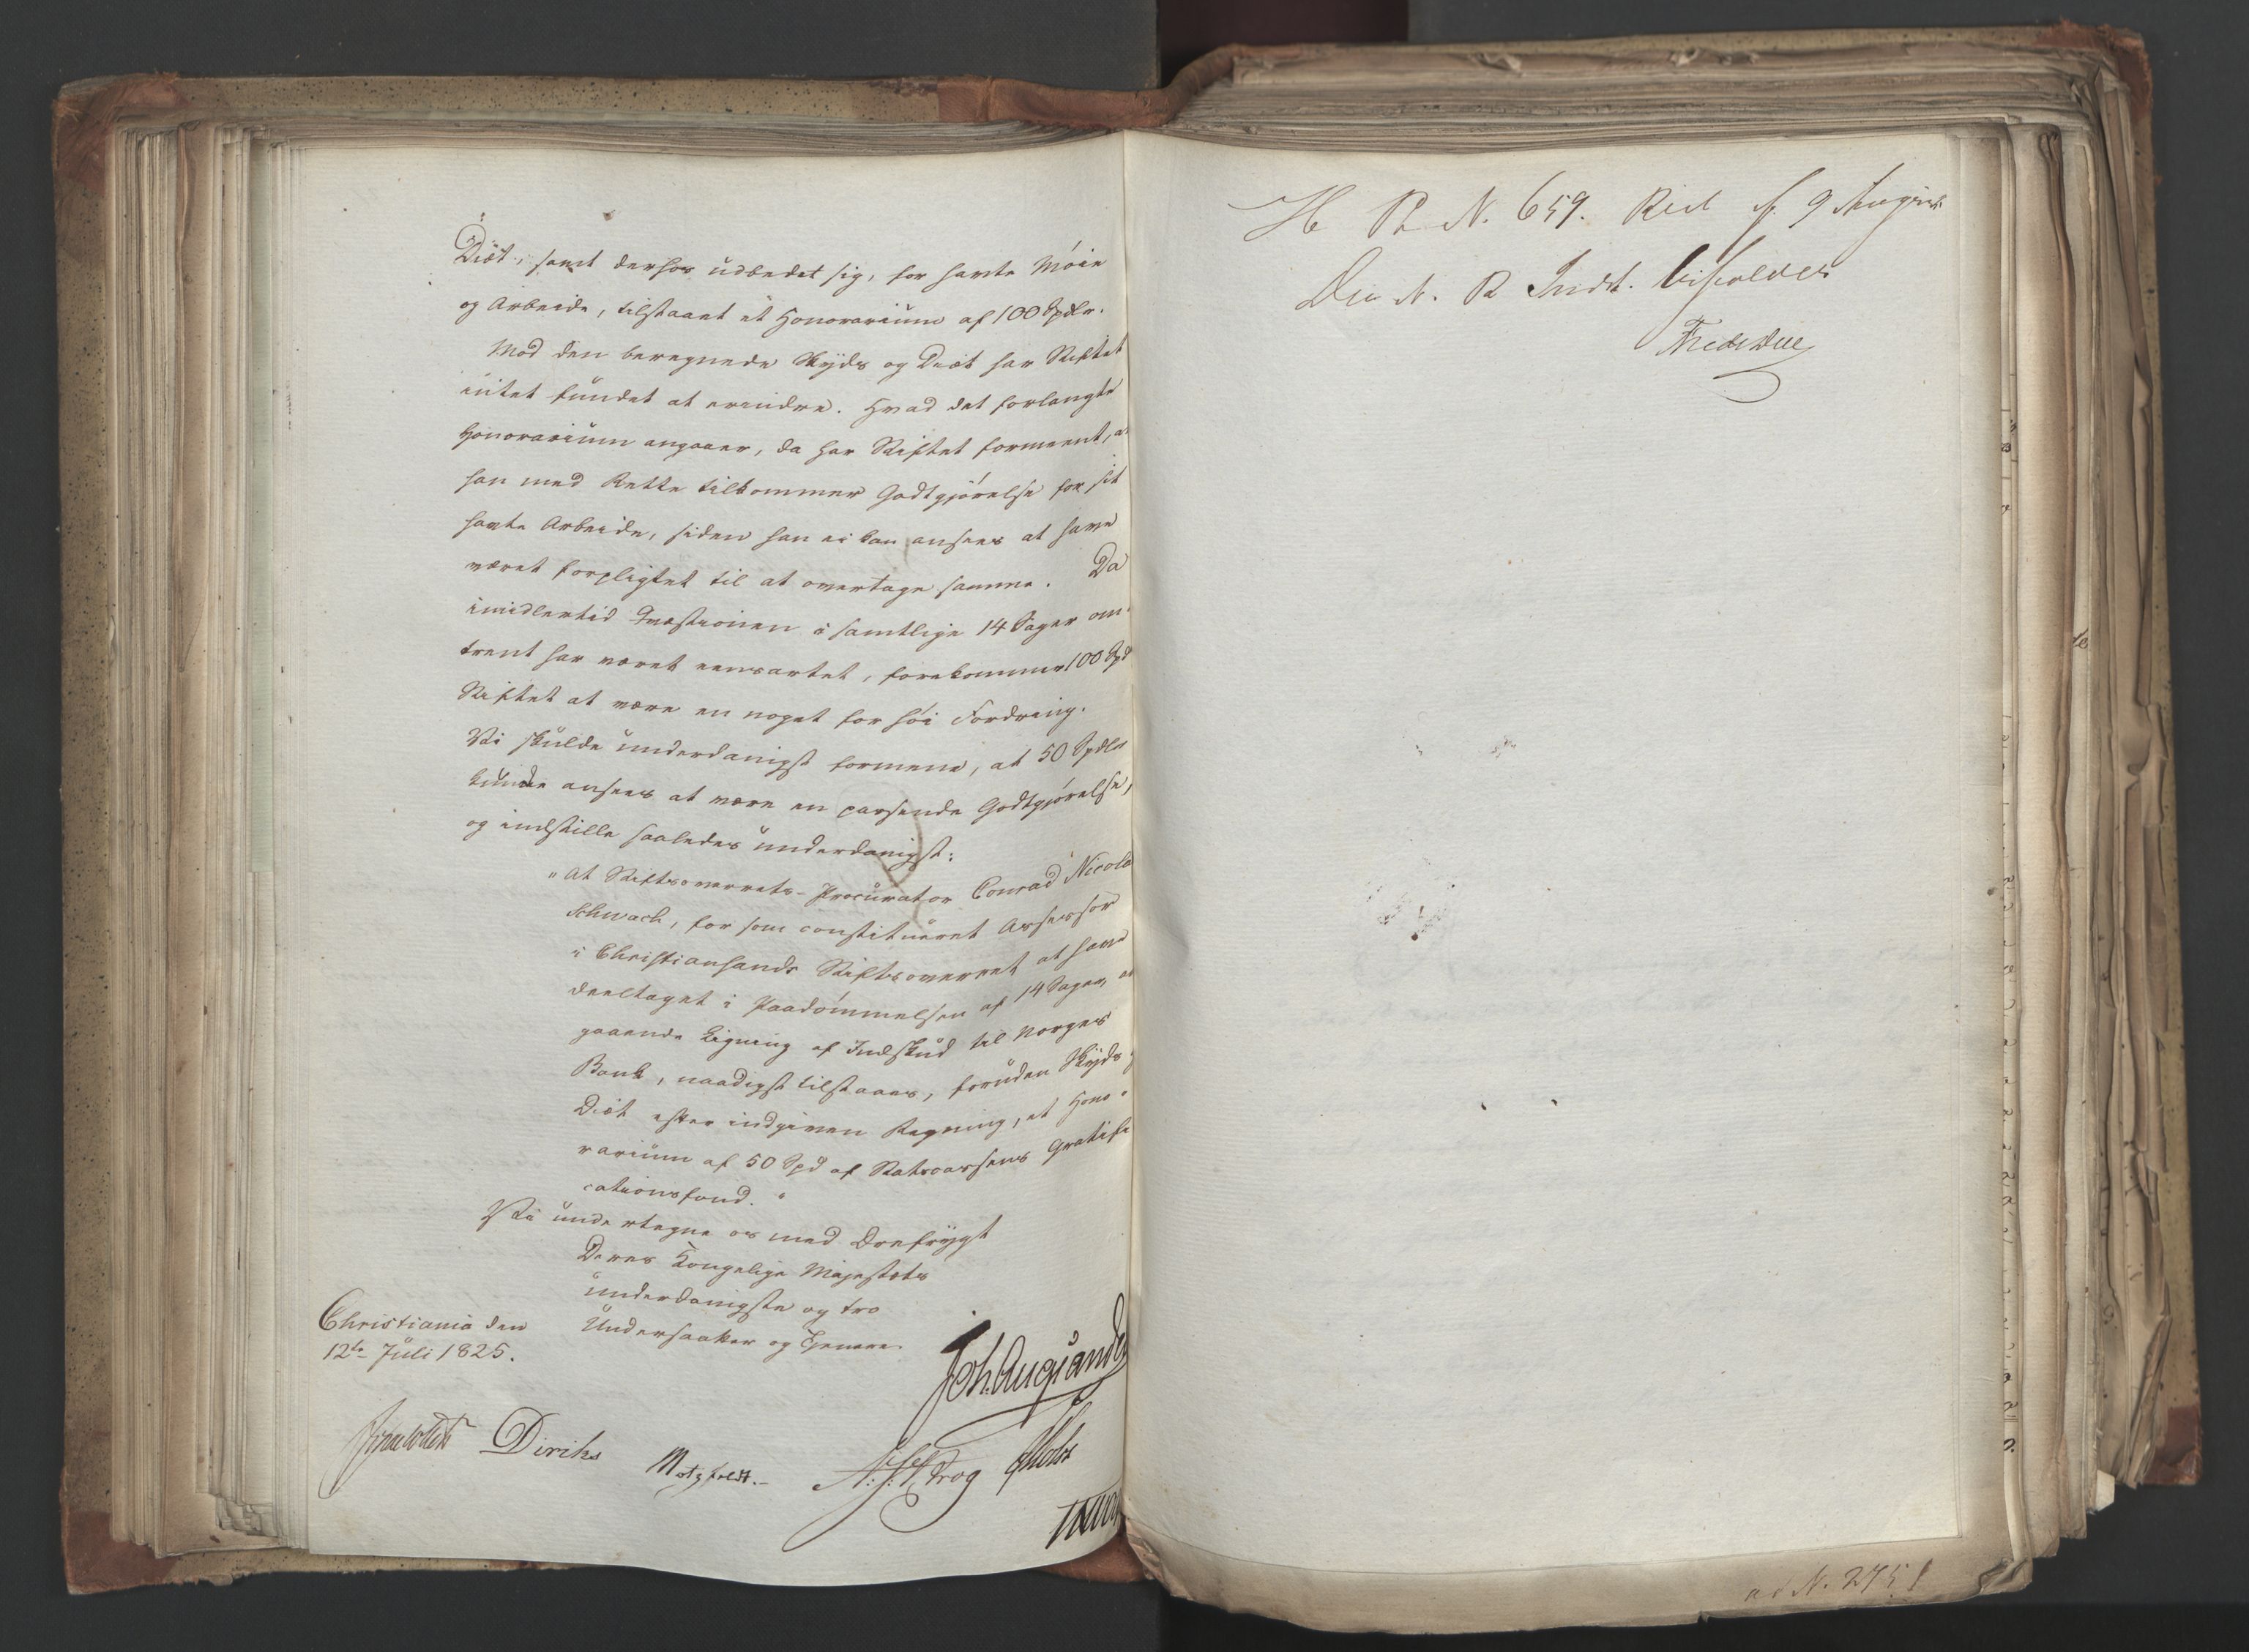 Diæt, samt derhos udbedet sig, for havte Möie
og Arbeide, tilstaaet et Honorarium af 100 Spdlr.
Mod den beregnede Skyds og Diæt har Stiftet
intet fundet at erindre. Hvad det forlangte
Honorarium angaaer, da har Stiftet formeent, at
han med Rette tilkommer Godtgjörelse for sit
havte Arbeide, siden han ei kan ansees at have
været forpligtet til at overtage samme. Da
imidlertid Qvæstionen i samtlige 14 Sager om-
trent har været eensartet, forekommer 100 Spd
Stiftet at være en noget for höi Fordring.
Vi skulde underdanigst formene, at 50 Spdlr
kunde ansees at være en passende Godtgjörelse,
og indstille saaledes underdanigst:
"At Stiftsoverrets-Procurator Conrad Nicolai
Schwach, for som constitueret Assessor
i Christiansands Stiftsoverret at have
deeltaget i Paadömmelsen af 14 Sager, an
gaaende Ligning af Indskud til Norges
Bank, naadigst tilstaaes, foruden Skyds og
Diæt efter indgiven Regning, et Hono-
rarium af 50 Spd af Statscassens Gratifi
cationsfond."
Vi undertegne os med Ærefrygt
Deres Kongelige Majestæts
underdanigste og tro
Undersaatter og Tjenere.
Christiania den
12te Juli 1825.
Joh. Aug. Sandels
Diriks
Motzfeldt.
H. H. Krog Holst
H P. N. 659. Rest f. 9 August
Den N. R Indst. bifaldes
Fred. Due
ad N. 2751